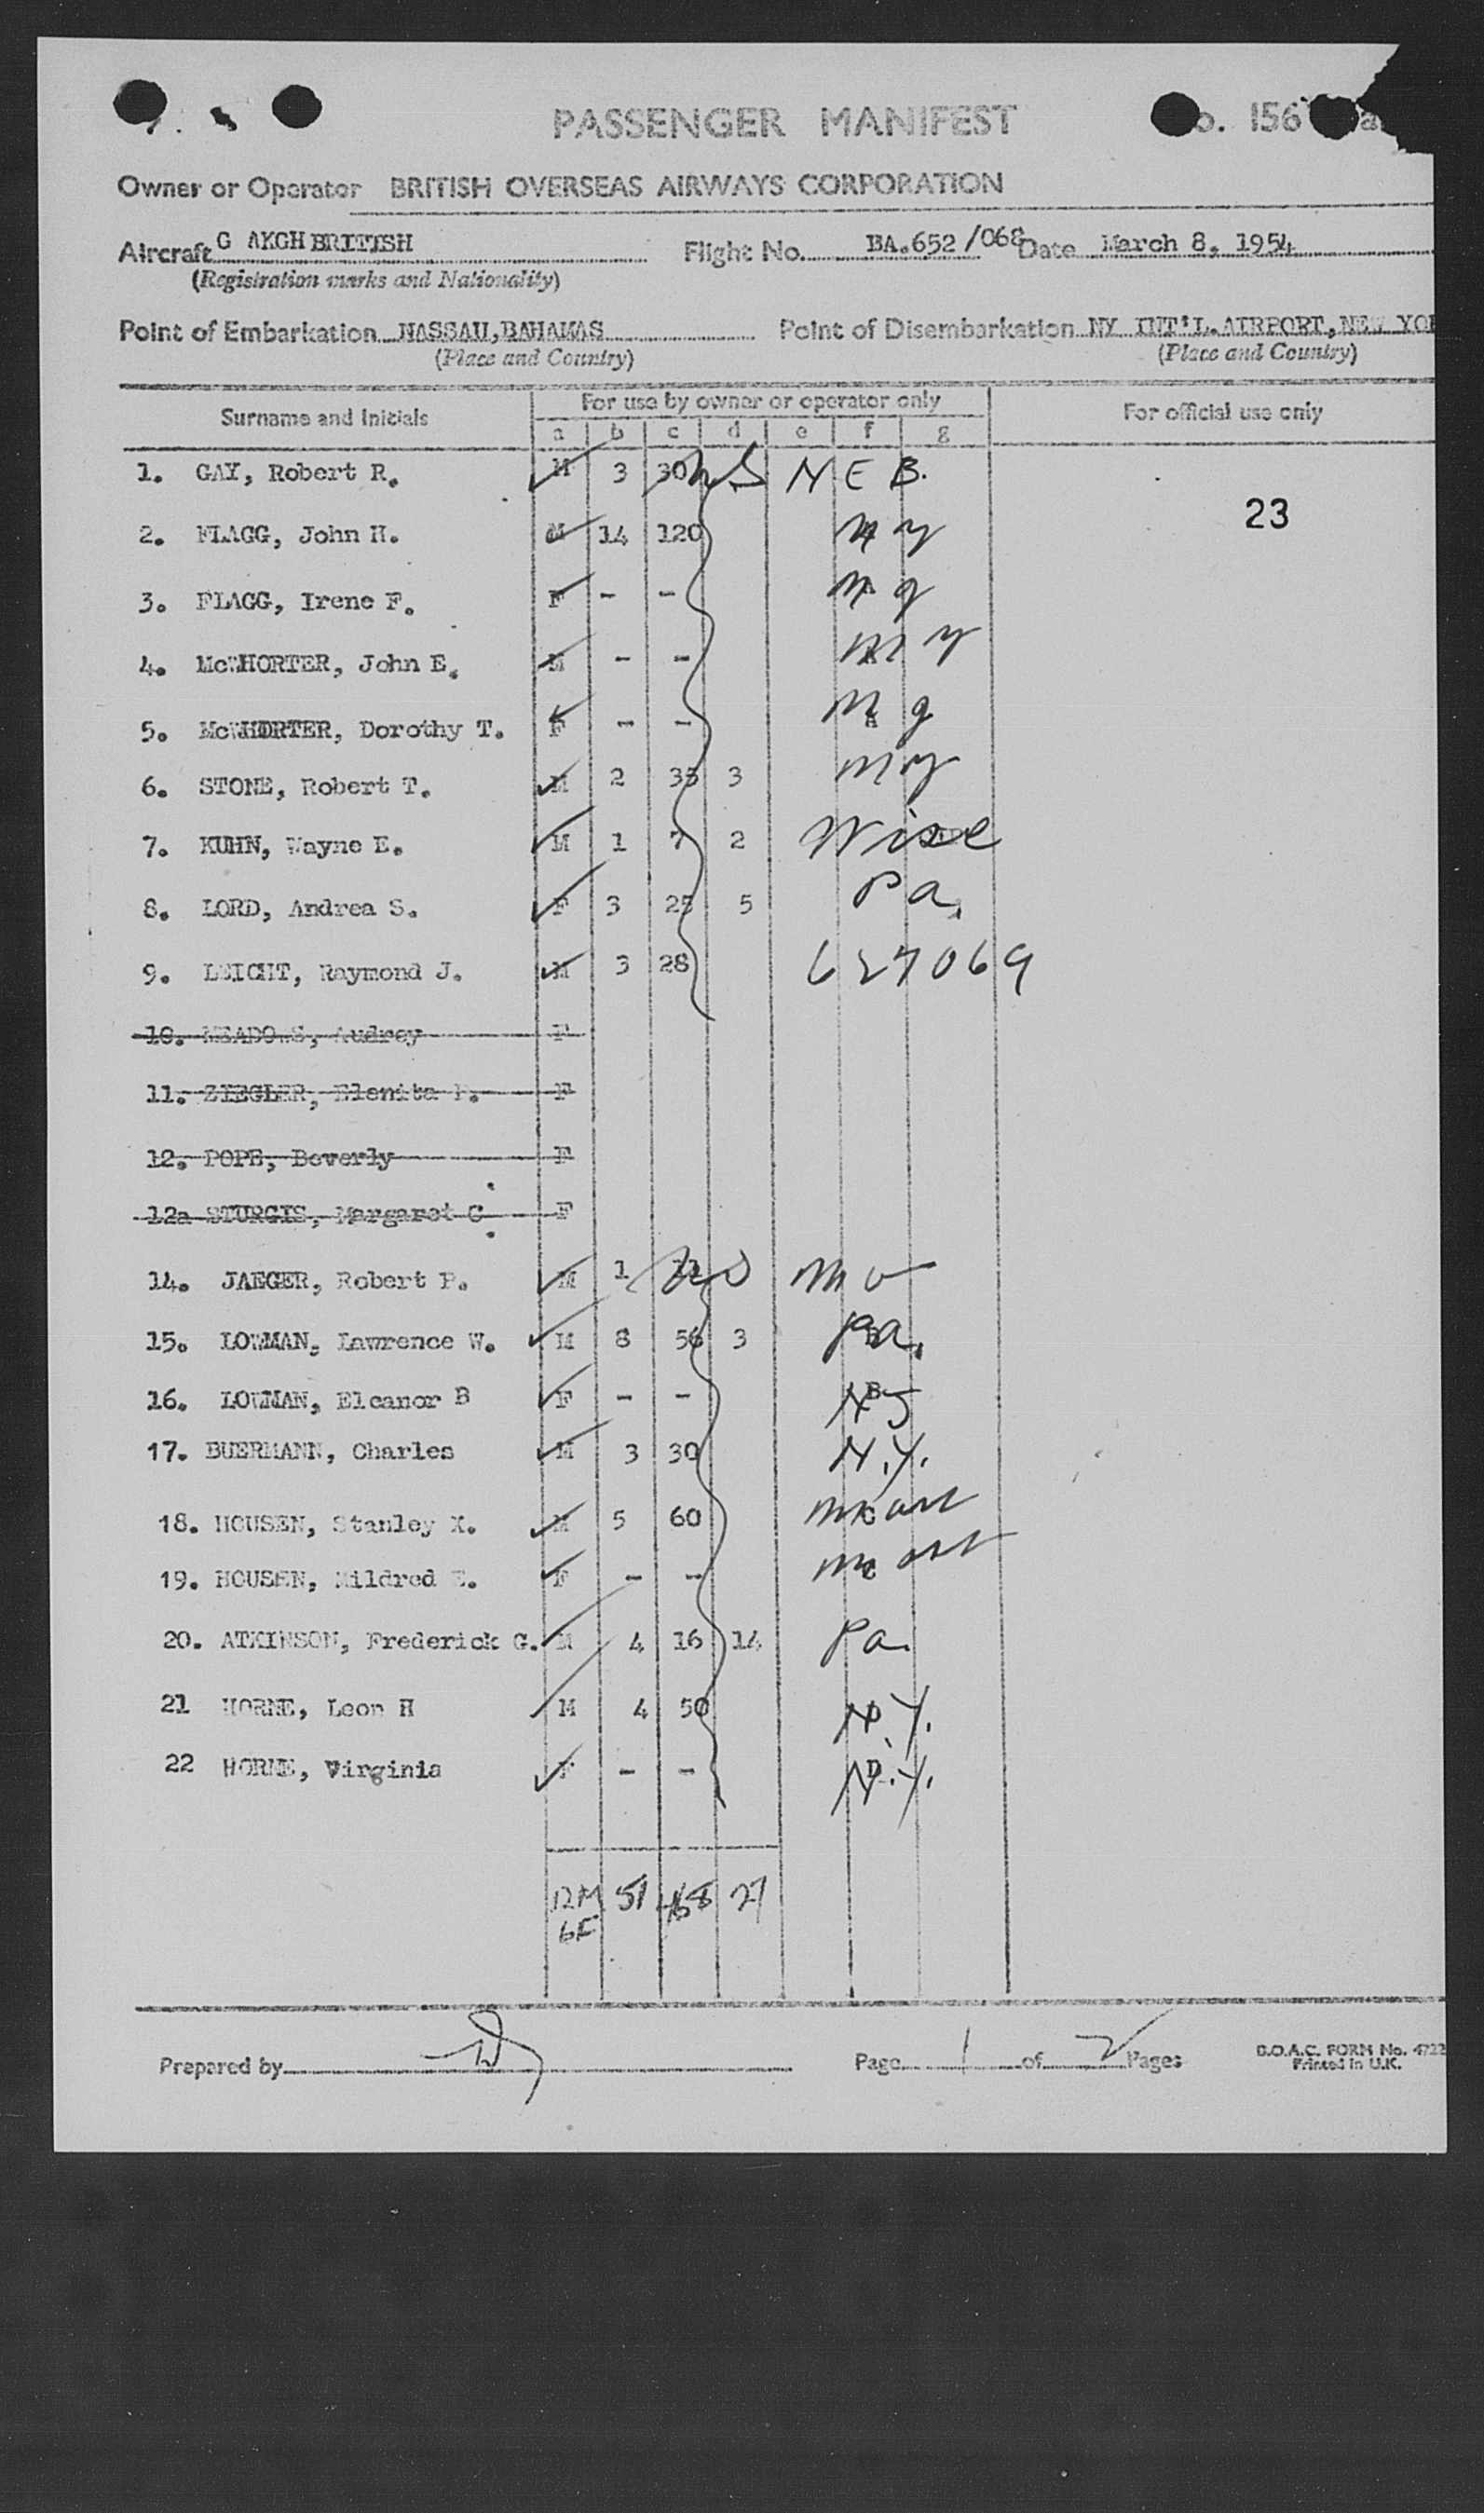 PASSENGER MANIFEST
o. 156
Owner or Operator BRITISH OVERSEAS AIRWAYS CORPORATION
Aircraft G AKGH BRITISH Flight No. BA.652/068 Date March 8, 1954
(Registration marks and Nationality)
Point of Embarkation NASSAU,BAHAMAS Point of Disembarkation NY INT'L.AIRPORT,NEW YO
(Place and Country) (Place and Country)
Surname and Initials For use by owner or operator only For official use only
a b c d e f g
1. GAY, Robert R. M 3 30 NEB.
23
2. FLAGG, John H. M 14 120 N Y
3. FLAGG, Irene F. F - - N Y
4. McWHORTER, John E. M - - N Y
5. McWHORTER, Dorothy T. F - - N Y
6. STONE, Robert T. M 2 35 3 N Y
7. KUHN, Wayne E. M 1 7 2 Wisc
8. LORD, Andrea S. F 3 25 5 Pa.
9. LEICHT, Raymond J. M 3 28 627069
10. MEADOWS, Audrey F
11. ZIEGLER, Elenita P. F
12. POPE, Beverly F
12a STURGIS, Margaret C. F
14. JAEGER, Robert P. M 1 Mo
15. LOWMAN, Lawrence W. M 8 56 3 Pa.
16. LOWMAN, Eleanor B F - - B NJ
17. BUERMANN, Charles M 3 30 N.Y.
18. HOUSEN, Stanley X. M 5 60 C
19. HOUSEN, Mildred E. F - - C
20. ATKINSON, Frederick G. M 4 16 14 Pa.
21 HORNE, Leon H M 4 50 N.Y.
22 HORNE, Virginia F - - D N.Y.
12M 51 468 27
6F
Prepared by Page 1 of 2 Pages
B.O.A.C. FORM No. 4722
Printed in U.K.